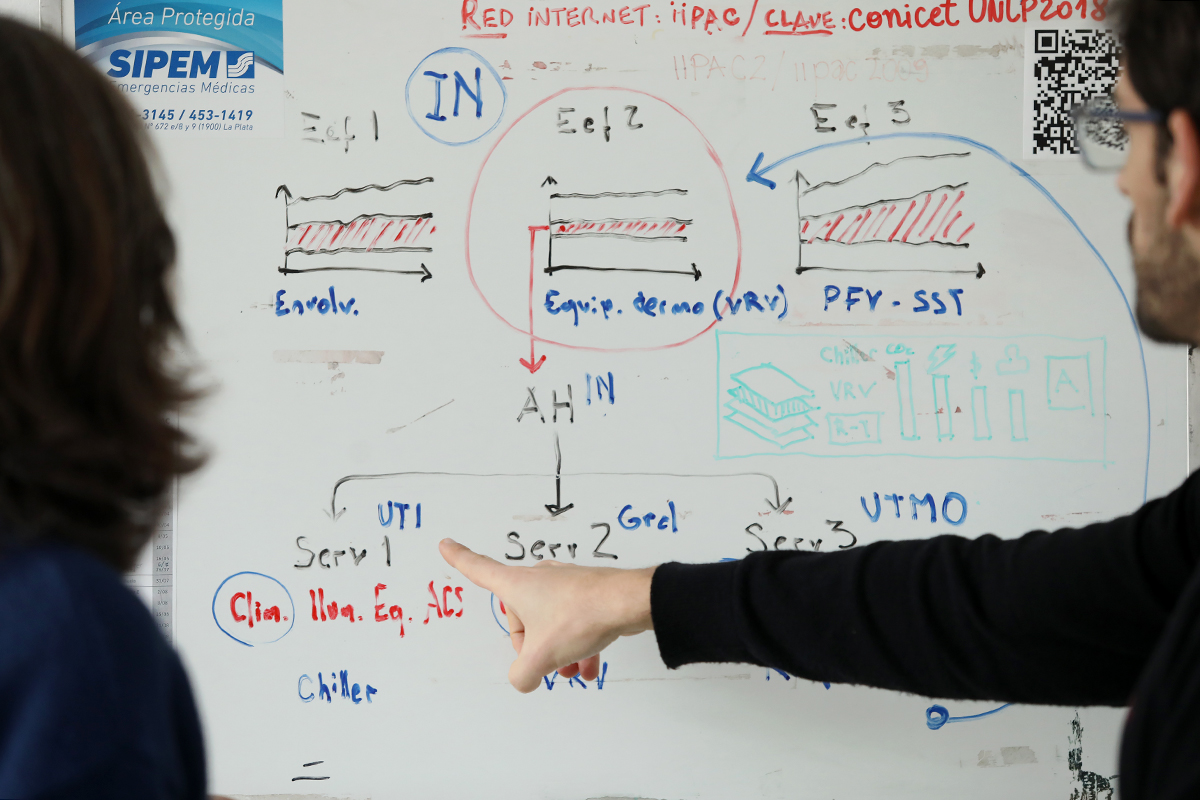 Área Protegida
SIPEM
Emergencias Médicas
3145 / 453-1419
672 e/8 y 9 (1900) La Plata
RED INTERNET: iiPAC / CLAVE: conicet UNLP2018
IIPAC2 / iipac 2009
IN
Eef 1
Eef 2
Eef 3
Envolv.
Equip. dermo (VRV)
PFV - SST
Chiller CO2
VRV
R-T
A
AH IN
UTI
Grcl
UTMO
Serv 1
Serv 2
Serv 3
Clim. Ilum. Eq. ACS
Chiller
VRV